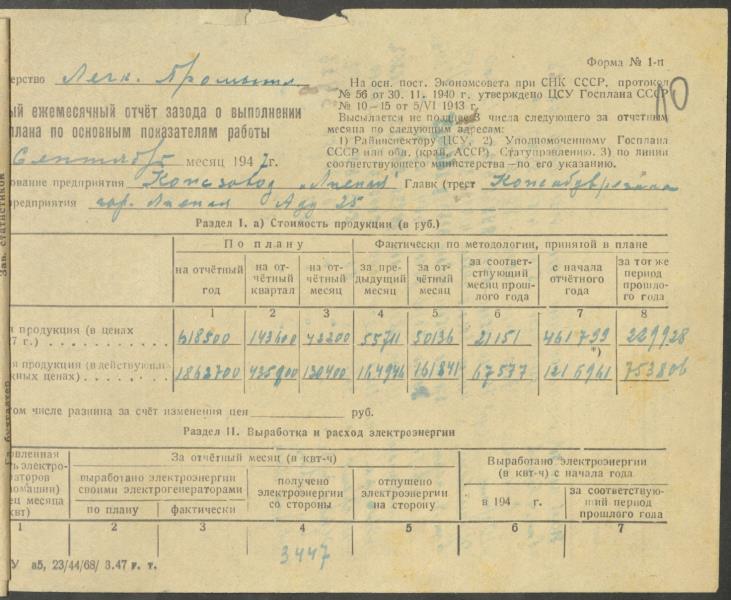 Форма № 1-п
10
ерство Легк. Промышл
На осн. пост. Экономсовета при СНК СССР, протокол
№ 56 от 30. 11. 1940 г., утверждено ЦСУ Госплана СССР
№ 10—15 от 5/VI 1943 г.
ый ежемесячный отчёт завода о выполнении
плана по основным показателям работы
Высылается не позднее 3 числа следующего за отчетным
месяца по следующим адресам:
1) Райинспектору ЦСУ, 2) Уполномоченному Госплана
СССР или обл. (край, АССР). Статуправлению. 3) по линии
соответствующего министерства—по его указанию.
Сентябрь месяц 1947 г.
ование предприятия Кожзавод Главк (трест
редприятия гор. 25
Раздел I. а) Стоимость продукции (в руб.)
По плану Фактически по методологии, принятой в плане
на отчётный год на отчётный квартал на отчётный месяц за предыдущий месяц за отчётный месяц за соответствующий месяц прошлого года с начала отчётного года за тот же период прошлого года
1 2 3 4 5 6 7 8
я продукция (в ценах
7 г.) 618500 143600 43200 55711 50136 21151 461799 229928
*)
я продукция (в действующих
ных ценах) 1862700 425900 130400 164946 161841 67577 753806
ом числе разница за счёт изменения цен руб.
Раздел II. Выработка и расход электроэнергии
За отчётный месяц (в квт-ч) Выработано электроэнергии (в квт-ч) с начала года
выработано электроэнергии своими электрогенераторами получено электроэнергии со стороны отпущено электроэнергии на сторону в 194 г. за соответствующий период прошлого года
по плану фактически
1 2 3 4 5 6 7
3447
У а5, 23/44/68/ 3.47 г. т.
Зав. статистиков
бухгалтер